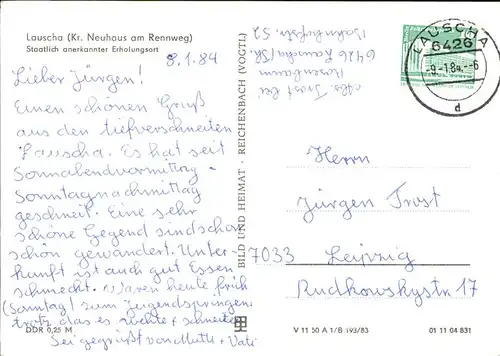 Lauscha (Kr. Neuhaus am Rennweg)
Staatlich anerkannter Erholungsort
8.1.84
Lieber Jürgen!
Einen schönen Gruß
aus den tiefverschneiten
Lauscha. Es hat seit
Sonnabendvormittag -
Sonntagnachmittag
geschneit. Eine sehr
schöne Gegend sind schon
schön gewandert. Unter-
kunft ist auch gut Essen
schmeckt. Waren heute früh
(Sonntag) zum Jugendspringen
trotz das es wehte + schneite
Sei gegrüßt von Mutti + Vati
DDR 0,25 M
BILD UND HEIMAT · REICHENBACH (VOGTL)
Abs. Trost bei
6426 Lauscha/Th.
Bahnhofstr. 52
LAUSCHA
6426
-9.-1.84.--6
d
Herrn
Jürgen Trost
7033 Leipzig
Rudkowskystr 17
V 11 50 A 1/B 193/83
01 11 04 831